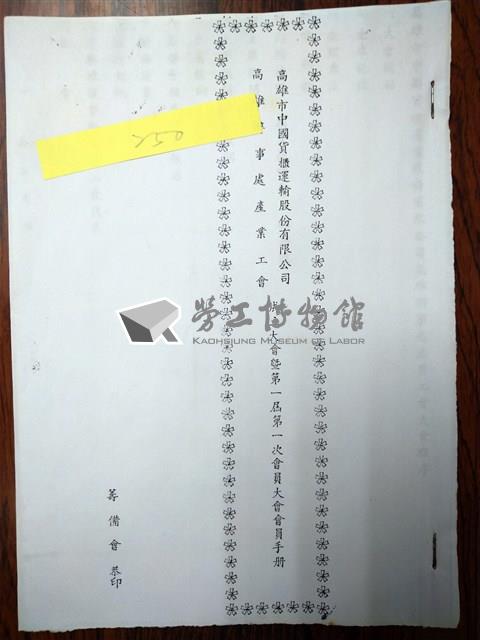 高雄市中國貨櫃運輸股份有限公司
高雄 事處產業工會
大會暨第一屆第一次會員大會會員手册
籌備會 恭印
250
勞工博物館
KAOHSIUNG MUSEUM OF LABOR